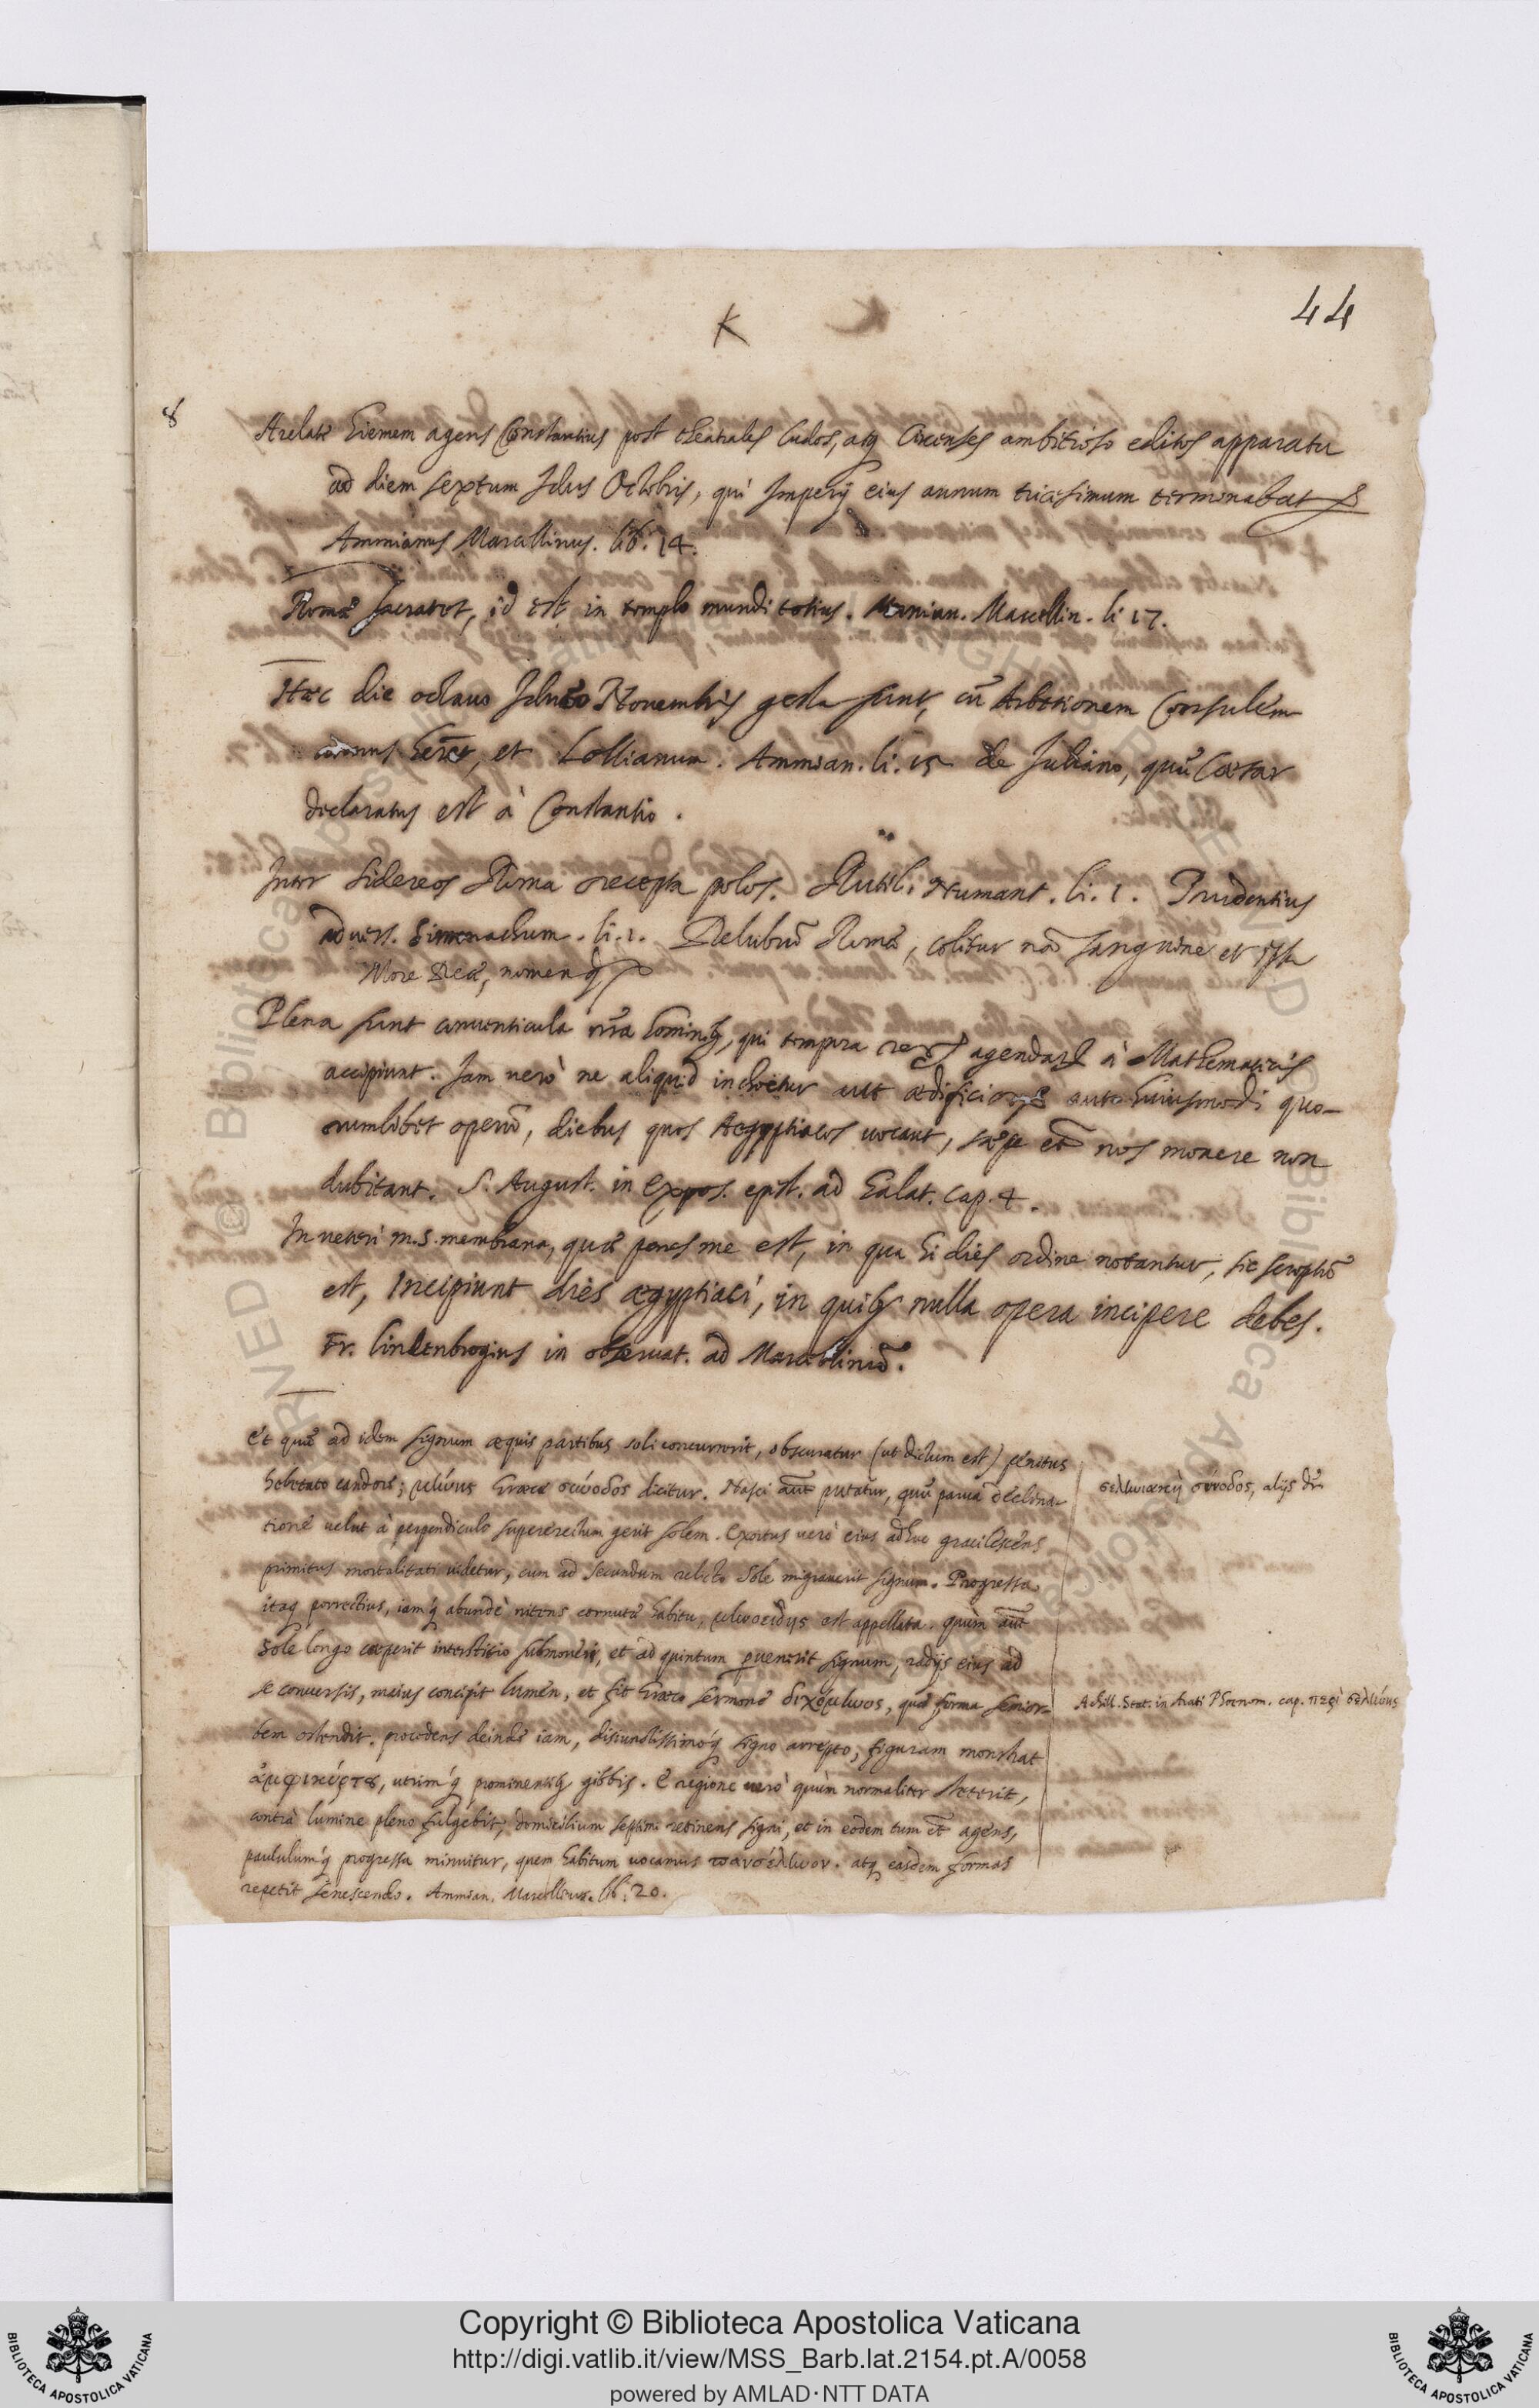 44
K
8
Arelate hiemem agens Constantius post theatrales ludos, atq Circenses ambitioso editos apparatu
ad diem sextum Idus Octobris, qui Imperij eius annum tricesimum terminabat
Ammianus Marcellinus. lib. 14.
Romæ sacravit, id est in templo mundi totius. Ammian. Marcellin. li 17.
Hæc die octavo Iduum Novembris gesta sunt, cũ Arbetionem Consulem
annus, et Lollianum. Ammian. li. 15 de Juliano, quũ Cæsar
declaratus est à Constantio.
Inter sidereos Roma recepta polos. Rutil. Numant. li. 1. Prudentius
advers. Simmachum. li. 1. Delubrũ Romæ, colitur nã sanguine et ipsa
More Deæ, nomenq
Plena sunt conventicula nr̃a hominibꝫ, qui tempora rerꝝ agendarꝝ à Mathematicis
accipiunt. Jam verò ne aliquid inchoetur aut ædificiorꝝ aut huiusmodi quo-
rumlibet operũ, diebus quos Aegyptiacos vocant, sæpe etiã nos monere non
dubitant. S. August. in Expos. epist. ad Galat. cap. 4.
In veteri m.s. membrana, quæ penes me est, in qua hi dies ordine notantur, sic scriptũ
est, Incipiunt dies ægyptiaci, in quibꝫ nulla opera incipere debes.
Fr. Lindenbrogius in observat. ad Marcellinũ.
Et quũ ad idem signum æquis partibus soli concurrerit, obscuratur (ut dictum est) penitus
hebetato candore; Græcè σύνοδος dicitur. Nasci aut̃ putatur, quũ parvâ declina-
tione velut à perpendiculo supererectum gerit solem. Exortus verò eius adhuc gracilescens
primitus mortalitati videtur, cum ad secundum relicto Sole migraverit signum. Progressa
itaq porrectius, iamq́ abundè nitens cornutæ habitu, μηνοειδὴς est appellata. quùm aut̃
Sole longo cœperit interstitio submoveri, et ad quintum pervenerit signum, radijs eius ad
se conversis, maius concipit lumen, et fit Græco sermone διχόμηνος, quæ forma semior-
bem ostendit. procedens deinde iam, disiunctissimoq́ signo arrepto, figuram monstrat
ἀμφικύρτȣ, utrimq́ prominentibꝫ gibbis. è regione verò quùm normaliter steterit,
contrà lumine pleno fulgebit, domicilium septimi retinens signi, et in eodem tum et̃ agens,
paululumq́ progressa minuitur, quem habitum vocamus πανσέληνον. atq easdem formas
repetit senescendo. Ammian. Marcellinus. lib. 20.
σεληνιακὴ σύνοδος, alijs dr̃
Achill. Stat. in Arati Phænom. cap. περὶ σελήνης
Copyright © Biblioteca Apostolica Vaticana
http://digi.vatlib.it/view/MSS_Barb.lat.2154.pt.A/0058
powered by AMLAD·NTT DATA
BIBLIOTECA APOSTOLICA VATICANA
BIBLIOTECA APOSTOLICA VATICANA